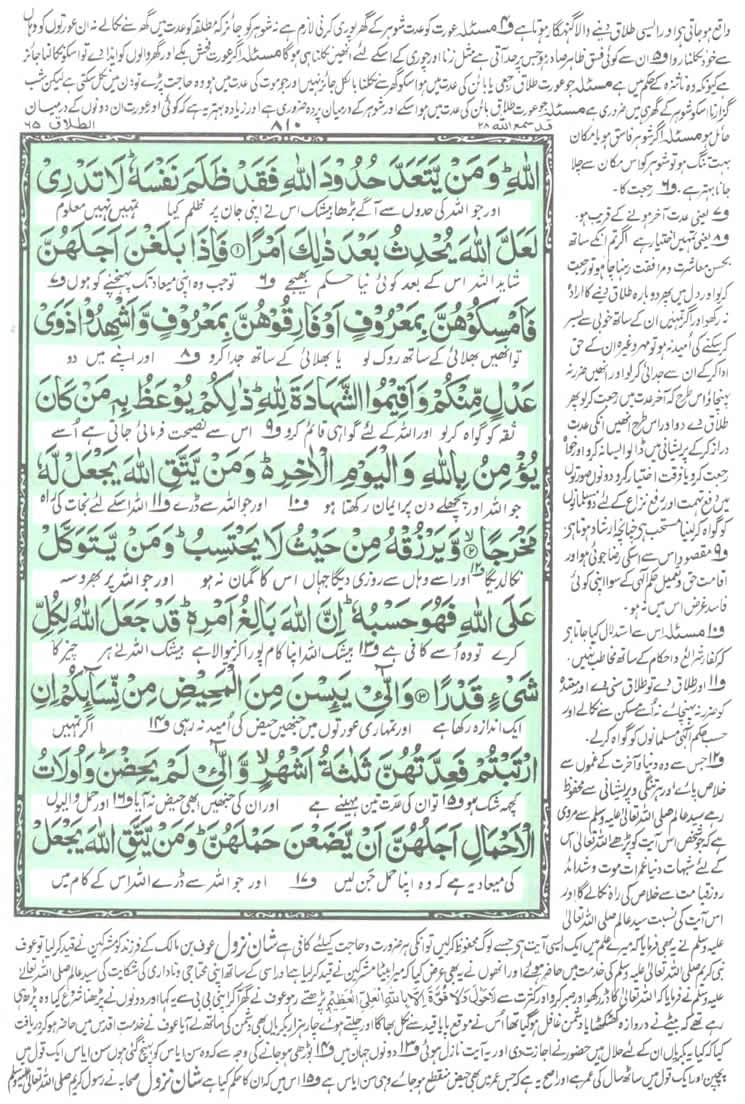 واقع ہوجاتی ہے اور ایسی طلاق دینے والا گنہگار ہوتا ہے ف۴ مسئلہ عورت کو عدت شوہر کے گھر پوری کرنی لازم ہے نہ شوہر کو جائز کہ مطلقہ کو عدت میں گھر سے نکالے نہ ان عورتوں کو وہاں
سے خود نکلنا روا ف۵ ان سے کوئی فسق ظاہر صادر ہو جس پر حد آتی ہے مثل زنا اور چوری کے اس کے لئے انھیں نکالنا ہی ہوگا مسئلہ اگر عورت فحش بکے اور گھر والوں کو ایذا دے تو اسکو نکالنا جائز
ہے کیونکہ وہ ناشزہ کے حکم میں ہے مسئلہ جو عورت طلاق رجعی یا بائن کی عدت میں ہو اسکو گھر سے نکلنا بالکل جائز نہیں اور جو موت کی عدت میں ہو وہ حاجت پڑے تو دن میں نکل سکتی ہے لیکن شب
گزارنا اسکو شوہر کے گھر ہی میں ضروری ہے مسئلہ جو عورت طلاق بائن کی عدت میں ہو اسکے اور شوہر کے درمیان پردہ ضروری ہے اور زیادہ بہتر یہ ہے کہ کوئی اور عورت ان دونوں کے درمیان
قد سمع اللہ ۲۸
۸۱۰
الطلاق ۶۵
اللّٰهِ ؕ وَ مَنْ یَّتَعَدَّ حُدُوْدَ اللّٰهِ فَقَدْ ظَلَمَ نَفْسَهٗ ؕ لَا تَدْرِیْ
اور جو اللہ کی حدوں سے آگے بڑھا بیشک اس نے اپنی جان پر ظلم کیا تمہیں نہیں معلوم
لَعَلَّ اللّٰهَ یُحْدِثُ بَعْدَ ذٰلِكَ اَمْرًا ۝۱ فَاِذَا بَلَغْنَ اَجَلَهُنَّ
شاید اللہ اس کے بعد کوئی نیا حکم بھیجے ف۶ تو جب وہ اپنی میعاد تک پہنچنے کو ہوں ف۷
فَاَمْسِكُوْهُنَّ بِمَعْرُوْفٍ اَوْ فَارِقُوْهُنَّ بِمَعْرُوْفٍ وَّ اَشْهِدُوْا ذَوَیْ
تو انھیں بھلائی کے ساتھ روک لو یا بھلائی کے ساتھ جدا کرو ف۸ اور اپنے میں دو
عَدْلٍ مِّنْكُمْ وَ اَقِیْمُوا الشَّهَادَةَ لِلّٰهِ ؕ ذٰلِكُمْ یُوْعَظُ بِهٖ مَنْ كَانَ
ثقہ کو گواہ کرلو اور اللہ کے لئے گواہی قائم کرو ف۹ اس سے نصیحت فرمائی جاتی ہے اُسے
یُؤْمِنُ بِاللّٰهِ وَ الْیَوْمِ الْاٰخِرِ ؕ وَ مَنْ یَّتَّقِ اللّٰهَ یَجْعَلْ لَّهٗ
جو اللہ اور پچھلے دن پر ایمان رکھتا ہو ف۱۰ اور جو اللہ سے ڈرے ف۱۱ اللہ اسکے لئے نجات کی راہ
مَخْرَجًا ۝۲ وَّ یَرْزُقْهُ مِنْ حَیْثُ لَا یَحْتَسِبُ ؕ وَ مَنْ یَّتَوَكَّلْ
نکال دیگا ف۱۲ اور اسے وہاں سے روزی دیگا جہاں اس کا گمان نہ ہو اور جو اللہ پر بھروسہ
عَلَى اللّٰهِ فَهُوَ حَسْبُهٗ ؕ اِنَّ اللّٰهَ بَالِغُ اَمْرِهٖ ؕ قَدْ جَعَلَ اللّٰهُ لِكُلِّ
کرے تو وہ اُسے کافی ہے ف۱۳ بیشک اللہ اپنا کام پورا کرنے والا ہے بیشک اللہ نے ہر چیز کا
شَیْءٍ قَدْرًا ۝۳ وَ الّٰٓـِٔیْ یَىِٕسْنَ مِنَ الْمَحِیْضِ مِنْ نِّسَآىِٕكُمْ اِنِ
ایک اندازہ رکھا ہے اور تمہاری عورتوں میں جنھیں حیض کی اُمید نہ رہی ف۱۴ اگر تمہیں
ارْتَبْتُمْ فَعِدَّتُهُنَّ ثَلٰثَةُ اَشْهُرٍ ۙ وَّ الّٰٓـِٔیْ لَمْ یَحِضْنَ ؕ وَ اُولَاتُ
کچھ شک ہو ف۱۵ تو ان کی عدت تین مہینے ہے اور ان کی جنھیں ابھی حیض نہ آیا ف۱۶ اور حمل والیوں
الْاَحْمَالِ اَجَلُهُنَّ اَنْ یَّضَعْنَ حَمْلَهُنَّ ؕ وَ مَنْ یَّتَّقِ اللّٰهَ یَجْعَلْ
کی میعاد یہ ہے کہ وہ اپنا حمل جَن لیں ف۱۷ اور جو اللہ سے ڈرے اللہ اس کے کام میں
حائل ہو مسئلہ اگر شوہر فاسق ہو یا مکان
بہت تنگ ہو تو شوہر کو اس مکان سے چلا
جانا بہتر ہے۔ ف۶ رجعت کا۔
ف۷ یعنی عدت آخر ہونے کے قریب ہو۔
ف۸ یعنی تمہیں اختیار ہے اگر تم انکے ساتھ
بحسن معاشرت و مرافقت رہنا چاہو تو رجعت
کرلو اور دل میں پھر دوبارہ طلاق دینے کا ارادہ
نہ رکھو اور اگر تمہیں ان کے ساتھ خوبی سے بسر
کرسکنے کی اُمید نہ ہو تو مہر وغیرہ ان کے حق
ادا کرکے ان سے جدائی کرلو اور انھیں ضرر نہ
پہنچاؤ اس طرح کہ آخر عدت میں رجعت کرلو پھر
طلاق دے دو اور اس طرح انھیں انکی عدت
دراز کرکے پریشانی میں ڈالو ایسا نہ کرو اور خواہ
رجعت کرو یا فرقت اختیار کرو دونوں صورتوں
میں دفع تہمت اور رفع نزاع کے لئے دو مسلمانوں
کو گواہ کرلینا مستحب ہے چنانچہ ارشاد ہوتا ہے
ف۹ مقصود اس سے اسکی رضاجوئی ہو اور
اقامت حق و تعمیل حکم الٰہی کے سوا اپنی کوئی
فاسد غرض اس میں نہ ہو۔
ف۱۰ مسئلہ اس سے استدلال کیا جاتا ہے
کہ کفار شرائع و احکام کے ساتھ مخاطب نہیں۔
ف۱۱ اور طلاق دے تو طلاق سنی دے اور معتدہ
کو ضرر نہ پہنچائے نہ اُسے مسکن سے نکالے اور
حسب حکم الٰہی مسلمانوں کو گواہ کرلے۔
ف۱۲ جس سے وہ دنیا و آخرت کے غموں سے
خلاص پائے اور ہر تنگی و پریشانی سے محفوظ
رہے سید عالم صلی اللہ تعالیٰ علیہ وسلم سے مروی
ہے کہ جو شخص اس آیت کو پڑھے اللہ تعالیٰ اس
کے لئے شبہات دنیا غمرات موت و شدائد
روز قیامت سے خلاص کی راہ نکالے گا اور
اس آیت کی نسبت سید عالم صلی اللہ تعالیٰ
علیہ وسلم نے یہ بھی فرمایا کہ میرے علم میں ایک ایسی آیت ہے جسے لوگ محفوظ کرلیں تو انکی ہر ضرورت و حاجت کیلئے کافی ہے شان نزول عوف بن مالک کے فرزند کو مشرکین نے قید کرلیا تو عوف
نبی کریم صلی اللہ تعالیٰ علیہ وسلم کی خدمت میں حاضر ہوئے اور انھوں نے یہ بھی عرض کیا کہ میرا بیٹا مشرکین نے قید کرلیا ہے اور اسی کے ساتھ اپنی محتاجی و ناداری کی شکایت کی سید عالم صلی اللہ تعالیٰ
علیہ وسلم نے فرمایا کہ اللہ تعالیٰ کا ڈر رکھو اور صبر کرو اور کثرت سے لاحول ولا قوۃ الا باللہ العلی العظیم پڑھتے رہو عوف نے گھر آکر اپنی بی بی سے یہ کہا اور دونوں نے پڑھنا شروع کیا وہ پڑھ ہی
رہے تھے کہ بیٹے نے دروازہ کھٹکھٹایا دشمن غافل ہوگیا تھا اس نے موقع پایا قید سے نکل بھاگا اور چلتے ہوئے چار ہزار بکریاں بھی دشمن کی ساتھ لے آیا عوف نے خدمت اقدس میں حاضر ہو کر دریافت
کیا کہ کیا یہ بکریاں ان کے لئے حلال ہیں حضور نے اجازت دی اور یہ آیت نازل ہوئی ف۱۳ دونوں جہان میں ف۱۴ بوڑھی ہوجانے کی وجہ سے کہ وہ سن ایاس کو پہنچ گئی ہوں سن ایاس ایک قول میں
پچپن اور ایک قول میں ساٹھ سال کی عمر ہے اور اصح یہ ہے کہ جس عمر میں بھی حیض منقطع ہوجائے وہی سن ایاس ہے ف۱۵ اس میں کہ ان کا حکم کیا ہے شان نزول صحابہ نے رسول کریم صلی اللہ تعالیٰ علیہ وسلم